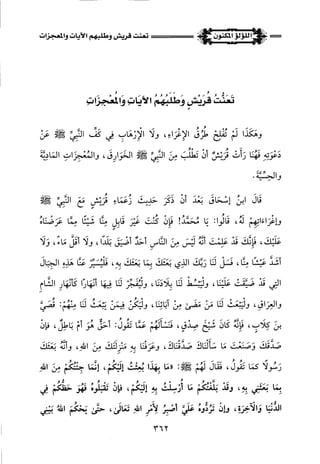 اللؤلؤ المكنون
تعنت قريش وطلبهم الآيات والمعجزات
تَعَنُّتُ قُرَيْشٍ وَطَلَبُهُمُ الآيَاتِ وَالْمُعْجِزَاتِ
وهَكَذَا لَمْ تُفْلِحْ طُرُقُ الْإِغْرَاءِ، ولَا الْإِرْهَابِ فِي كَفِّ النَّبِيِّ ﷺ عَنْ
دَعْوَتِهِ فَهُنَا رَأَتْ قُرَيْشٌ أنْ تَطْلُبَ مِنَ النَّبِيِّ ﷺ الخَوَارِقَ، والمُعْجِزَاتِ المَادِيَّةَ
والحِسِّيَّةَ.
قَالَ ابنُ إسْحَاقَ بَعْدَ أنْ ذَكَرَ حَدِيثَ زُعَمَاءِ قُرَيْشٍ مَعَ النَّبِيِّ ﷺ
وإغْرَاءَاتِهِمْ لَهُ، قَالُوا: يَا مُحَمَّدُ! فَإِنْ كُنْتَ غَيْرَ قَابِلٍ مِنَّا شَيْئًا مِمَّا عَرَضْنَاهُ
عَلَيْكَ، فَإِنَّكَ قَدْ عَلِمْتَ أنَّهُ لَيْسَ مِنَ النَّاسِ أحَدٌ أضْيَقَ بَلَدًا، ولَا أقَلَّ مَاءً، ولَا
أشَدَّ عَيْشًا مِنَّا، فَسَلْ لَنَا رَبَّكَ الذِي بَعَثَكَ بِمَا بَعَثَكَ بِهِ، فَلْيُسَيِّرْ عَنَّا هَذِهِ الجِبَالَ
التِي قَدْ ضَيَّقَتْ عَلَيْنَا، ولْيَبْسُطْ لَنَا بِلَادَنَا، ولْيُفَجِّرْ لَنَا فِيهَا أنْهَارًا كَأنْهَارِ الشَّامِ
والعِرَاقِ، ولْيَبْعَثْ لَنَا مَنْ مَضَى مِنْ آبَائِنَا، ولْيَكُنْ فِيمَنْ يَبْعَثُ لَنَا مِنْهُمْ: قُصَيُّ
بنُ كِلَابٍ، فَإِنَّهُ كَانَ شَيْخَ صِدْقٍ، فَنَسْأَلَهُمْ عَمَّا تَقُولُ: أحَقٌّ هُوَ أمْ بَاطِلٌ، فَإِنْ
صَدَّقُوكَ وَصَنَعْتَ مَا سَأَلْنَاكَ صَدَّقْنَاكَ، وعَرَفْنَا بِهِ مَنْزِلَتَكَ مِنَ اللهِ، وأنَّهُ بَعَثَكَ
رَسُولًا كَمَا تَقُولُ، فَقَالَ لَهُمْ ﷺ: «مَا بِهَذَا بُعِثْتُ إلَيْكُمْ، إنَّمَا جِئْتُكُمْ مِنَ اللهِ
بِمَا بَعَثَنِي بِهِ، وقَدْ بَلَّغْتُكُمْ مَا أُرْسِلْتُ بِهِ إلَيْكُمْ، فَإِنْ تَقْبَلُوهُ فَهُوَ حَظُّكُمْ فِي
الدُّنْيَا والْآخِرَةِ، وإنْ تَرُدُّوهُ عَلَيَّ أصْبِرْ لِأَمْرِ اللهِ تَعَالَى، حَتَّى يَحْكُمَ اللهُ بَيْنِي
٣٦٢